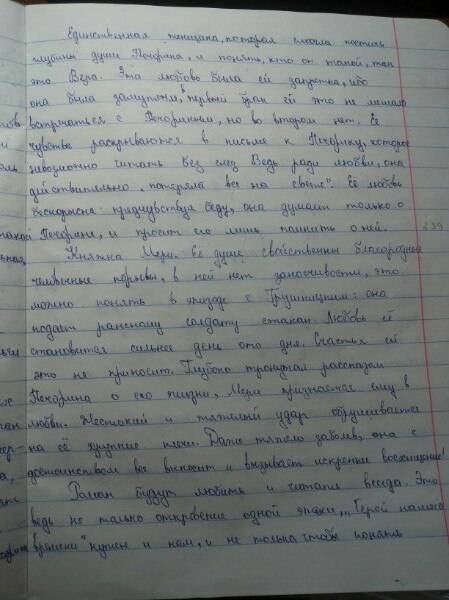 Единственная женщина, которая смогла постичь
глубины души Печорина, и понять, кто он такой, так
это Вера. Эта любовь была ей запретна, ибо
она была замужем, в первый брак ей это не мешало
встречаться с Печориным, но во втором нет. Её
чувства раскриваются в письме к Печорину, которое
невозможно читать без слез Ведь ради любви, она
действительно „потеряла все на свете". Её любовь
бескорисна: предчувствуя беду, она думает только о
Печорине, и просит его лишь помнить о ней.
Княжна Мери. Её душе свойственны благородные
человечные порывы, в ней нет заносчивости, это
можно понять в эпизоде с Грушницким: она
подаёт раненому солдату стакан. Любовь её
становится сильнее день ото дня. Счастья ей
это не приносит. Глубоко тронутая рассказом
Печорина о его жизни, Мери признается ему в
любви. Жестокий и тяжелый удар обрушивается
на её хрупкие плечи. Даже тяжело заболев, она с
достоинством все выносит и вызывает искренне восхищение!
Роман будут любить и читать всегда. Это
ведь не только откровение одной эпохи, „Герой нашего
времени" нужен и нам, и не только чтобы понять